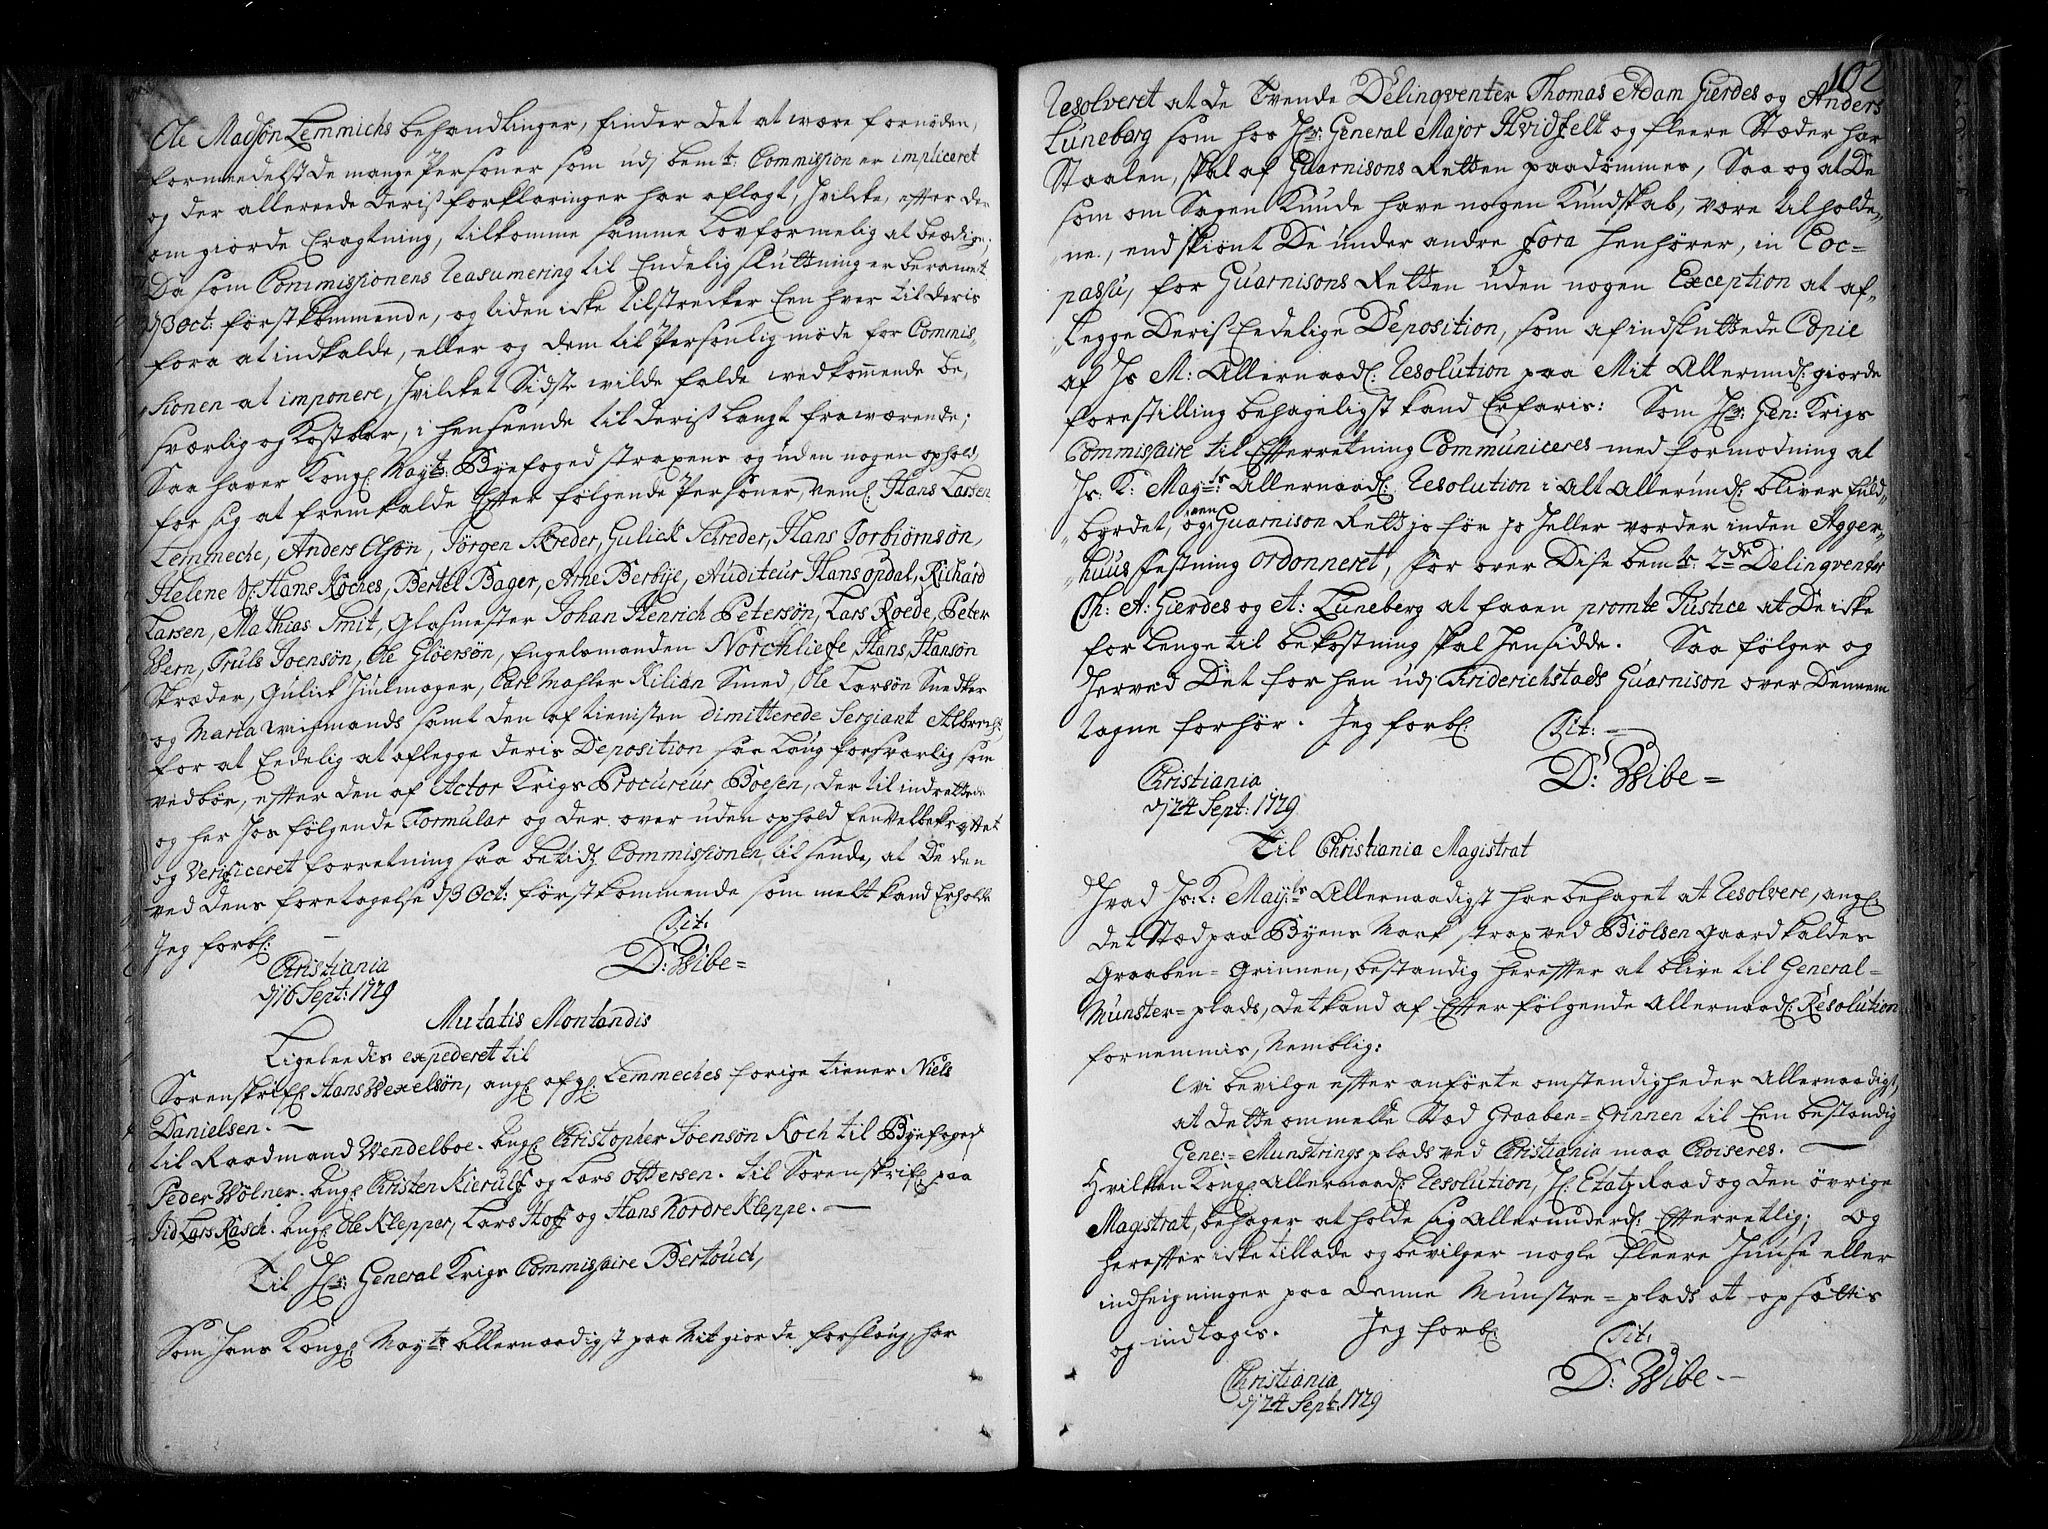 Ole Madsøn Lemmichs behandlinger, finder det at være fornøden,
formedelst de mange Personer som udj bem.te Commission er impliceret
og der allereede deris forklaringer har aflagt, hvilcke, efter der
om giorde Eragtning, tilkomme samme Lovformelig at beædige;
Da som Commissionens Reasumering til Endelig sluttning er berammet
d/3 Oct: førstkommende, og tiden icke tilstrecker Een hver til deris
fora at indkalde, eller og dem til Personlig møde for Commis„
„sionen at imponere, hvilcket Sidste wilde falde wedkommende be„
sværlig og Kostbar, i henseende til deris langt fraværende;
Saa haver Kongl: Mayts: Byefoged straxens og uden nogen ophold,
for sig at fremkalde Efter følgende Personer, Neml: Hans Larsen
Lemmeche, Anders Olsøn, Jørgen Skreder, Gulick Schreder, Hans Torbiørnsøn,
Helene Sl: Hans Koches, Bertel Bager, Arne Berbye, Auditeur Hans opdal, Richard
Larsen, Mathias Smit, Glasmester Johan Henrich Petersøn, Lars Roede, Peter
Wern, Truls Joensøn, Ole Gløersøn, Engelsmanden Norchlieffe, Hans Hansøn
Skræder, Gulick Hiulmager, Carl Mahler, Kilian Smed, Ole Larsøn Snedker
og Marta wismands samt den af tienisten dimitterede Sergiant Albrecht
for at Eedelig at aflegge deris Deposition saa Laug forsvarlig som
vedbør, efter den af Actor Krigs Procureur Boesen, der til indrettede
og her hos følgende Formular og der over uden ophold Een velbekræftet
og Verificeret forretning saa betids Commissionen, tilsende, at De den
ved dens foretagelse d/3 Oct: førstkommende som melt kand Erholde
Jeg forbl: Tit:
Christiania D: Wibe=
d/16 Sept: 1729
Mutatis Montandis
Ligeleedis expederet til
Sorenskrifr: Hans Wexelsøn, angl: afgl: Lemmeches forige tiener Niels
Danielsen. —
til Raadmand Wendelboe. Angl: Christopher Joensøn Koch til Byefoged
Peder Wølner. Angl: Christen Kierulf og Lars Ottersen. til Sorenskrifr: paa
Lars Rasch. Angl: Ole Klepper, Lars Hoff og Hans Nordre Kleppe. —
Til Hr: General Krigs Commissaire Bertouch,
Som Hans Kongl: Mayts: Allernaadigst paa Mit giorde forslaug, har
102
Resolveret at de Tvende Delinqventer Thomas Adam Gierdes og Anders
Luneberg som hos Hr: General Major Hvidfelt og fleere Stæder har
Staalen, skal af Guarnisons Retten paadømmes, Saa og at De
som om Sagen Kunde have nogen Kundskab, være tilholde„
„ne, endskiønt De under andre fora henhører, in Eoc=
passu, for Guarnisons Retten uden nogen Exception at af„
„legge Deris Eedelige Deposition, som af indsluttede Copie
af Hs M: Allernaadl: Resolution paa Mit Allerundl: giorde
forestilling behageligst kand Erfaris: Som Hr: Gen: Krigs
Commissaire til Efterretning Communiceres med formodning at
Hs: K: Mayts: Allernaadl: Resolution i Alt Allerundl: bliver fuld„
„byrdet, og en Guarnison Rett jo før jo heller vorder inden Agger„
„huus festning ordonneret, for over Dise bem.te 2de Delinqventer
Th: A: Gierdes og A: Luneberg at faaen promte Justice at De icke
for lenge til bekostning skal hensidde. Saa følger og
herved Det for hen udj Friderichstads Guarnison over Dennem
tagne forhør. Jeg forbl: Tit: —
Christiania D: Wibe=
d/24 Sept: 1729
Til Christiania Magistrat
Hvad Hs: K: Mayts Allernaadigst har behaget at Resolvere, angl:
det Stæd paa Byens Mark strax ved Biølsen gaard kaldes
Graaben=Grinnen, bestandig herefter at blive til General=
Munster=plads, det kand af Efter følgende Allernaadl: Resolution
fornemmis, Nemblig:
Vi bevilge efter anførte omstendigheder Allernaadigst,
at dette ommelte Stæd Graaben=Grinnen til Een bestandig
Gene:=Munstrings plads ved Christiania maa Choiseres. —
Hvilken Kongl: Allernaadl: Resolution, Hr: Etatz Raad og den øvrige
Magistrat, behager at holde sig Allerunderdl: Efterrettlig; og
herefter icke tillade og bevilger nogle fleere Huuse eller
indheigninger paa denne Munstre=plads at opsættis
og indtages. Jeg forbl: Tit:
Christiania D: Wibe. —
d/24 Sept: 1729